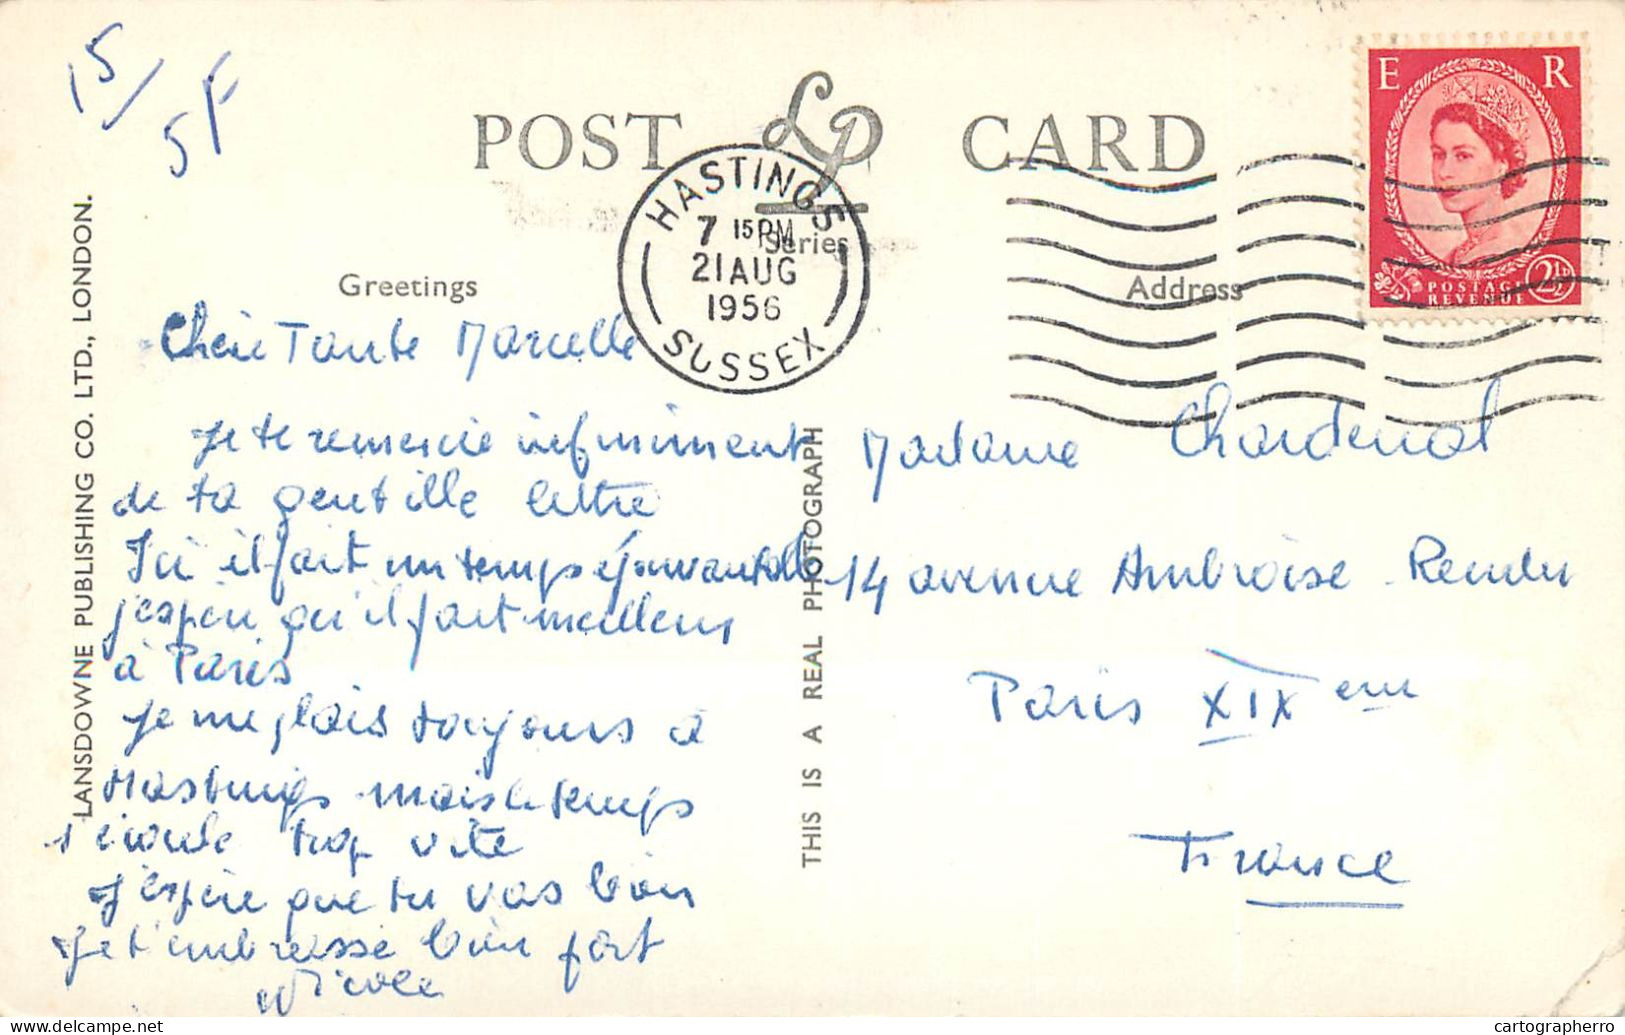 15/
5F
POST CARD
LP
Series
HASTINGS
7 15PM
21 AUG
1956
SUSSEX
E R
POSTAGE
REVENUE
2½D
LANSDOWNE PUBLISHING CO. LTD., LONDON.
Greetings
Chère Tante Marcelle
Je te remercie infiniment
de ta gentille lettre
Ici il fait un temps épouvantable
j'espère qu'il fait meilleur
à Paris
Je me plais toujours à
Hastings mais le temps
s'écoule trop vite
J'espère que tu vas bien
Je t'embrasse bien fort
Nicole
THIS IS A REAL PHOTOGRAPH
Address
Madame Chardenal
14 avenue Ambroise Rendu
Paris XIXem
France
cartographerro